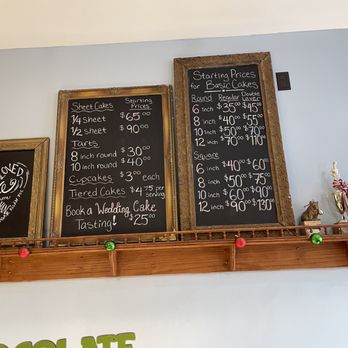 Sheet Cakes Starting Prices
1/4 Sheet $65.00
1/2 Sheet $90.00
Tarts
8 inch round $30.00
10 inch round $40.00
Cupcakes $3.00 each
Tiered Cakes $4.75 per serving
Book a Wedding Cake
Tasting! $25.00
Starting Prices
for Basic Cakes
Round Regular Double Layer
6 inch $35.00 $45.00
8 inch $40.00 $55.00
10 inch $50.00 $70.00
12 inch $70.00 $110.00
Square
6 inch $40.00 $60.00
8 inch $50.00 $75.00
10 inch $60.00 $90.00
12 inch $90.00 $130.00